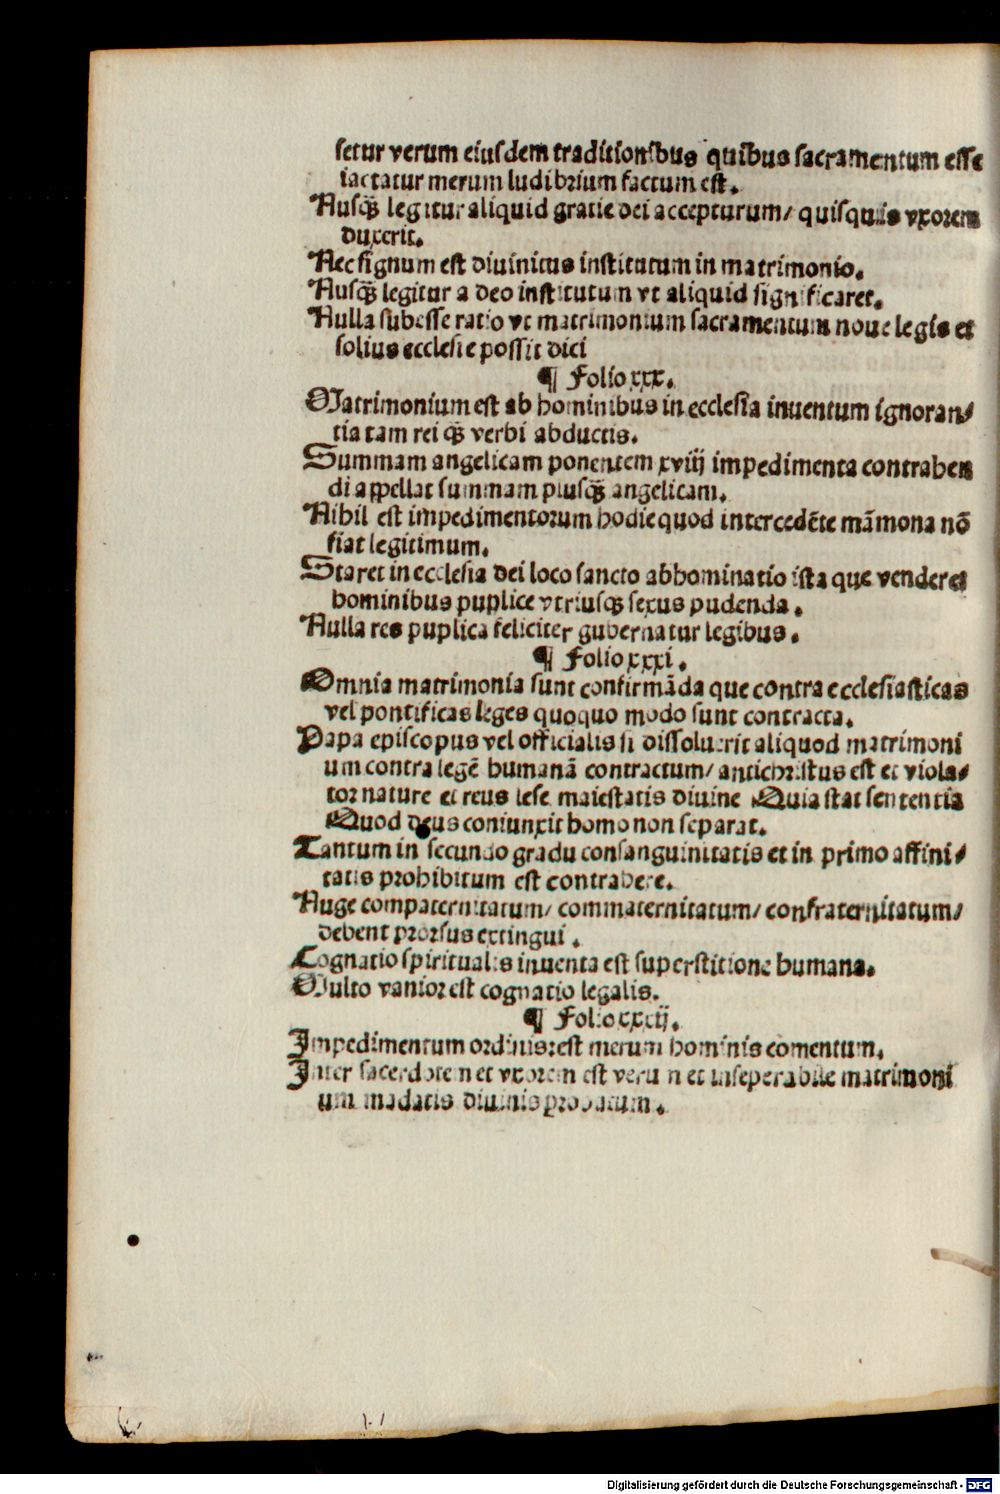 setur verum eiusdem traditionibus quibus sacramentum esse
iactatur merum ludibrium factum est.
Nusqꝫ legitur aliquid gratie dei accepturum/ quisquis vxorem
duxerit.
Nec signum est diuinitus institutum in matrimonio.
Nusqꝫ legitur a deo institutum vt aliquid significaret.
Nulla subesse ratio vt matrimonium sacramentum noue legis et
solius ecclesie possit dici
¶ Folio xxx.
Matrimonium est ab hominibus in ecclesia inuentum ignoran/
tia tam rei qꝫ verbi abductis.
Summam angelicam ponentem xviij impedimenta contrahen
di appellat summam plusqꝫ angelicam.
Nihil est impedimentorum hodie quod intercedēte māmona nō
fiat legitimum.
Staret in ecclesia dei loco sancto abhominatio ista que venderet
hominibus puplice vtriusqꝫ sexus pudenda.
Nulla res puplica feliciter gubernatur legibus.
¶ Folio xxxi.
Omnia matrimonia sunt confirmāda que contra ecclesiasticas
vel pontificas leges quoquo modo sunt contracta.
Papa episcopus vel officialis si dissoluerit aliquod matrimoni
um contra legē humanā contractum/ antichristus est et viola/
tor nature et reus lese maiestatis diuine Quia stat sententia
Quod deus coniunxit homo non separat.
Tantum in secundo gradu consanguinitatis et in primo affini/
tatis prohibitum est contrahere.
Nuge compaternitatum/ commaternitatum/ confraternitatum/
debent prorsus extingui.
Cognatio spiritualis inuenta est superstitione humana.
Multo vanior est cognatio legalis.
¶ Folio xxxij.
Impedimentum ordinis est merum hominis comentum.
Inter sacerdotem et vxorem est verum et inseperabile matrimoni
um madatis diuinis probatum.
Digitalisierung gefördert durch die Deutsche Forschungsgemeinschaft - DFG